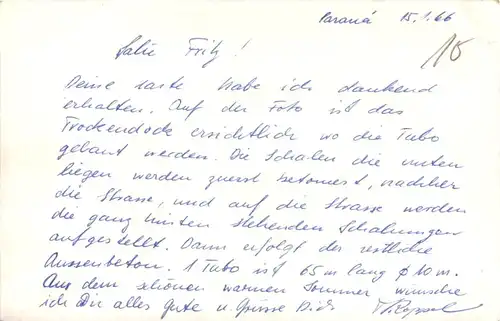 Paraná 15.1.66
10
Salü Fritz!
Deine Karte habe ich dankend
erhalten. Auf der Foto ist das
Trockendock ersichtlich wo die Tubo
gebaut werden. Die Schalen die unten
liegen werden zuerst betoniert, nachher
die Strasse, und auf die Strasse werden
die ganz hinten stehenden Schalungen
aufgestellt. Dann erfolgt der restliche
Aussenbeton. 1 Tubo ist 65 m lang φ 10 m.
Aus dem schönen warmen Sommer wünsche
ich Dir alles gute u. Grüsse Dich